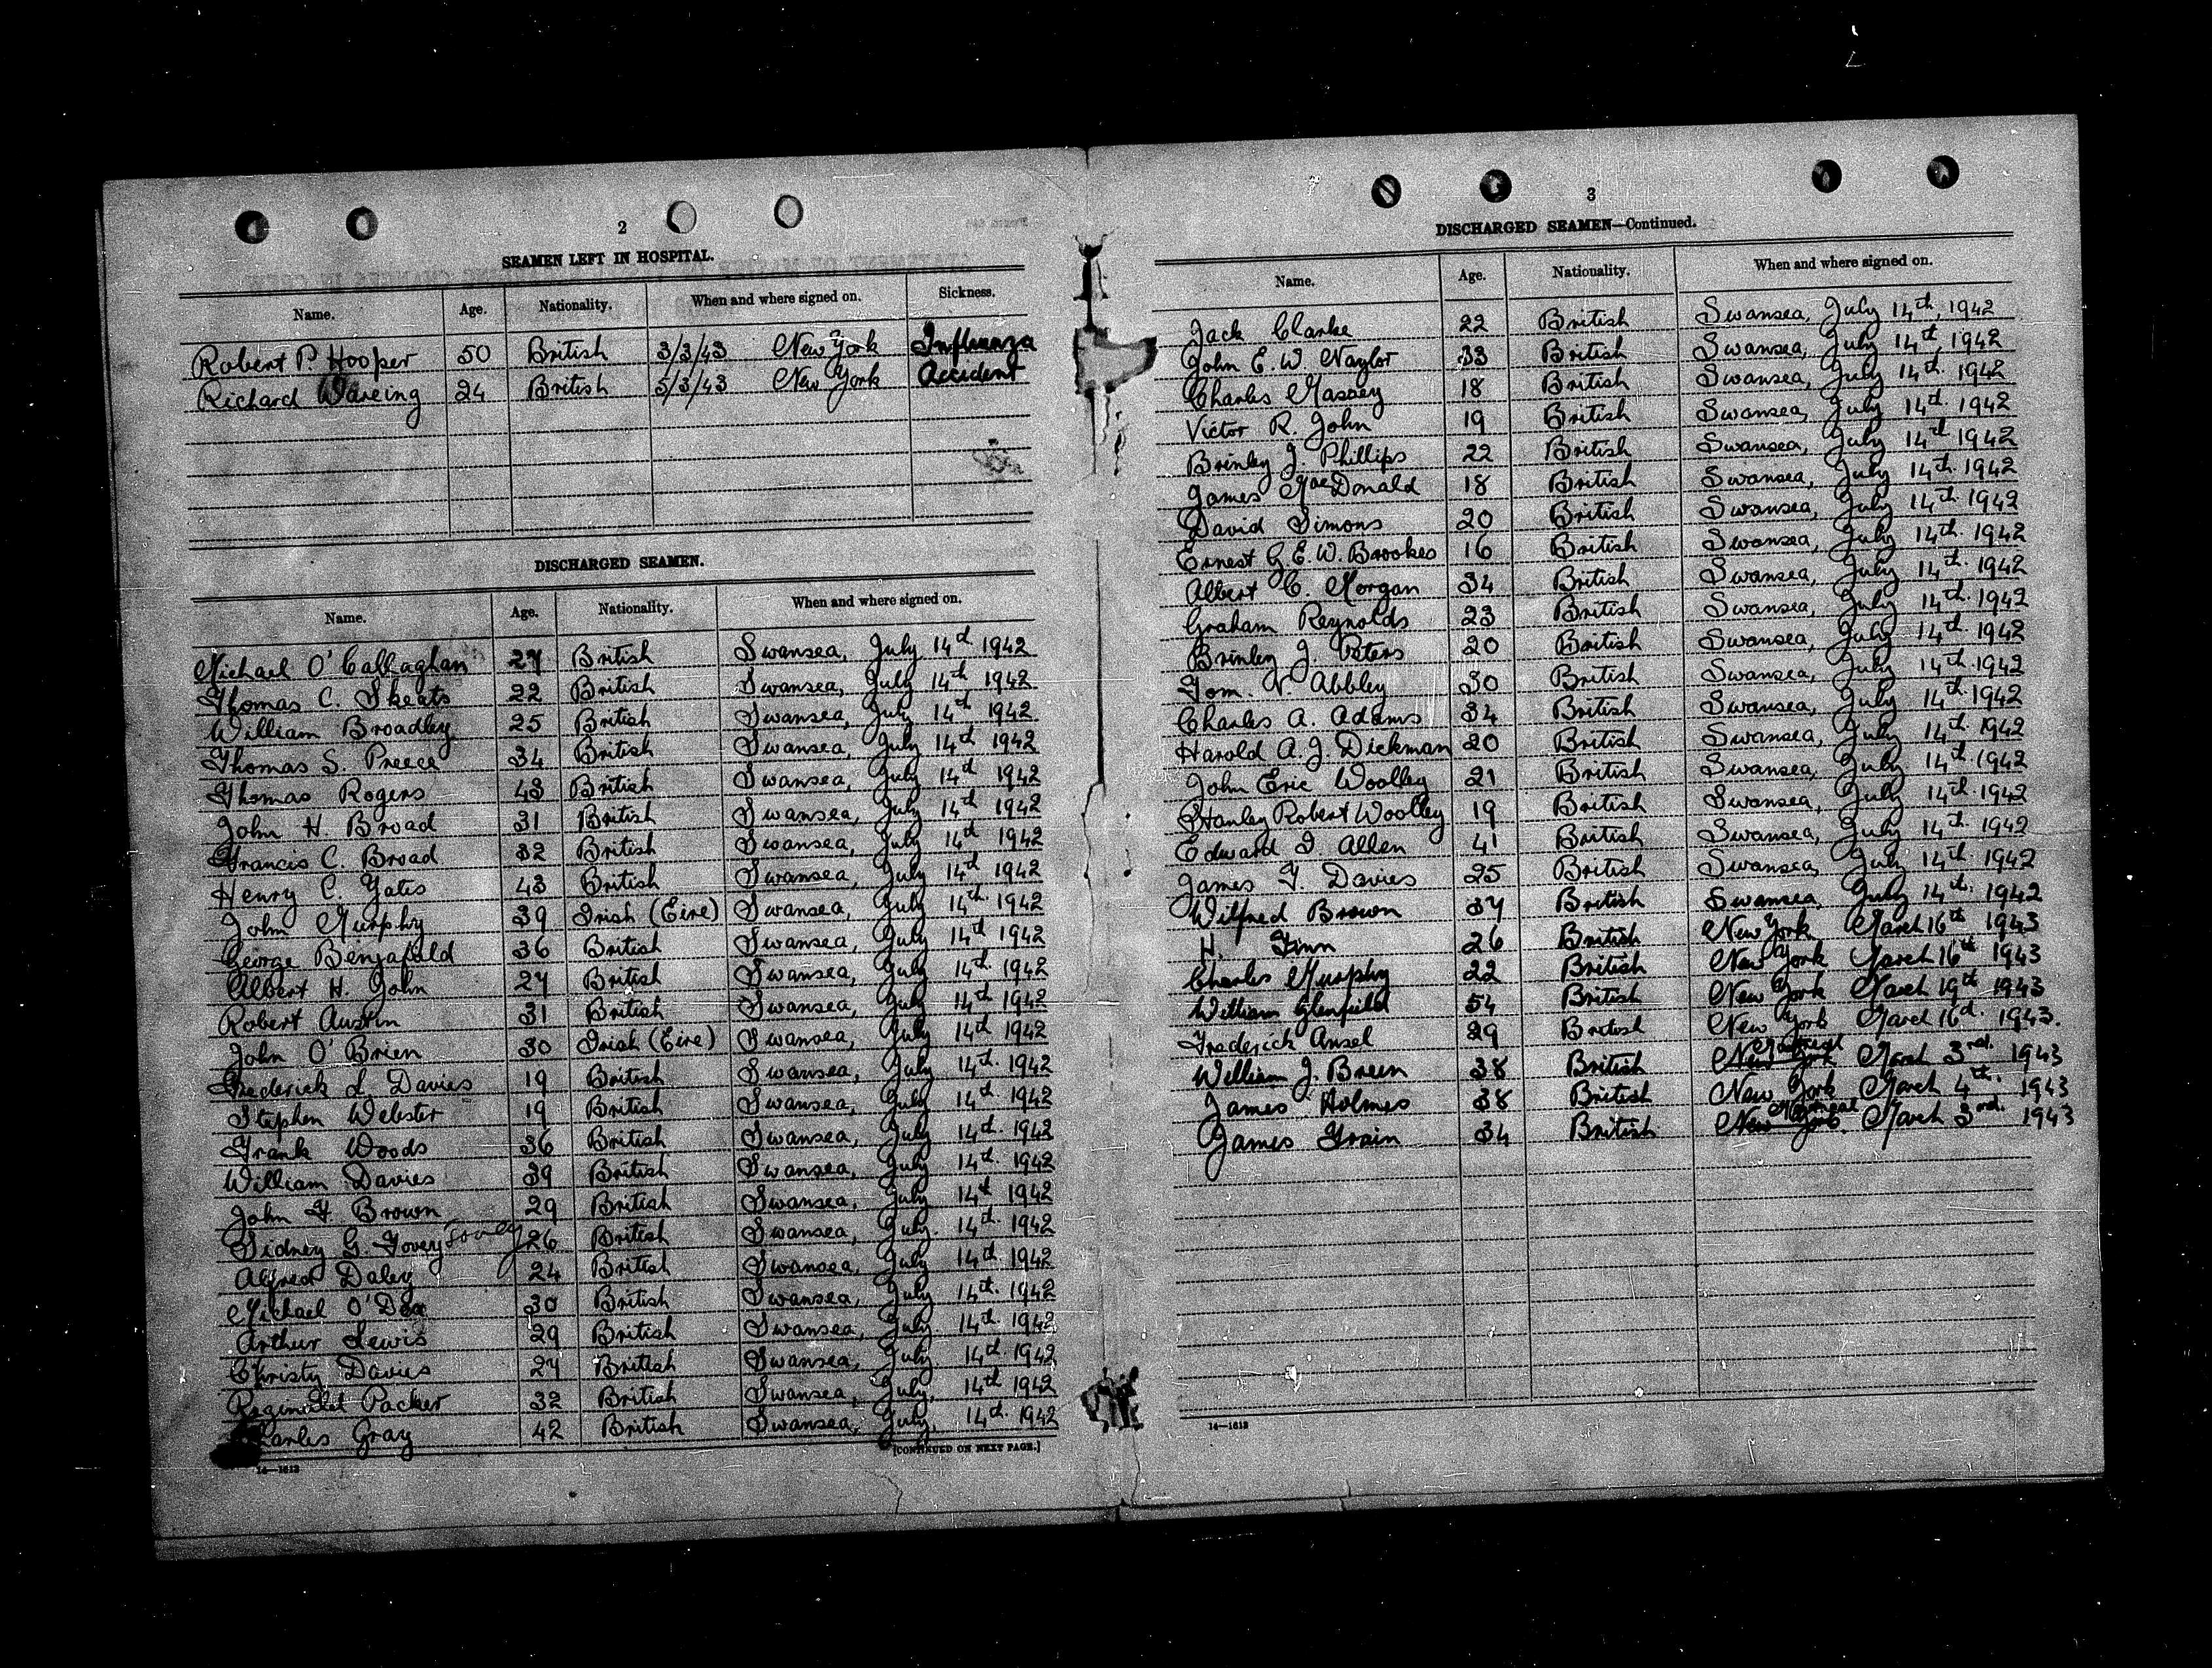 2
SEAMEN LEFT IN HOSPITAL.
Name. Age. Nationality. When and where signed on. Sickness.
Robert P. Hooper 50 British 3/3/43 New York Influenza
Richard Wareing 24 British 5/3/43 New York Accident
DISCHARGED SEAMEN.
Name. Age. Nationality. When and where signed on.
Michael O'Callaghan 27 British Swansea, July 14th 1942
Thomas C. Skeats 22 British Swansea, July 14th 1942
William Broadley 25 British Swansea, July 14th 1942
Thomas S. Preece 34 British Swansea, July 14th 1942
Thomas Rogers 43 British Swansea, July 14th 1942
John H. Broad 31 British Swansea, July 14th 1942
Francis C. Broad 32 British Swansea, July 14th 1942
Henry C. Yates 43 British Swansea, July 14th 1942
John Murphy 39 Irish (Eire) Swansea, July 14th 1942
George Benjafield 36 British Swansea, July 14th 1942
Albert H. John 27 British Swansea, July 14th 1942
Robert Austin 31 British Swansea, July 14th 1942
John O'Brien 30 Irish (Eire) Swansea, July 14th 1942
Frederick L. Davies 19 British Swansea, July 14th 1942
Stephen Webster 19 British Swansea, July 14th 1942
Frank Woods 36 British Swansea, July 14th 1942
William Davies 39 British Swansea, July 14th 1942
John F. Brown 29 British Swansea, July 14th 1942
Sidney G. 26 British Swansea, July 14th 1942
Alfred Daley 24 British Swansea, July 14th 1942
Michael O'Dea 30 British Swansea, July 14th 1942
Arthur Lewis 29 British Swansea, July 14th 1942
Christy Davies 27 British Swansea, July 14th 1942
Reginald Packer 32 British Swansea, July 14th 1942
Charles Gray 42 British Swansea, July 14th 1942
14—1613
[CONTINUED ON NEXT PAGE.]
3
DISCHARGED SEAMEN—Continued.
Name. Age. Nationality. When and where signed on.
Jack Clarke 22 British Swansea, July 14th, 1942
John E. W. Naylor 33 British Swansea, July 14th, 1942
Charles Massey 18 British Swansea, July 14th, 1942
Victor R. John 19 British Swansea, July 14th 1942
Brinley J. Phillips 22 British Swansea, July 14th 1942
James MacDonald 18 British Swansea, July 14th 1942
David Simons 20 British Swansea, July 14th 1942
Ernest G. E. W. Brookes 16 British Swansea, July 14th 1942
Albert C. Morgan 34 British Swansea, July 14th 1942
Graham Reynolds 23 British Swansea, July 14th 1942
Brinley J. Peters 20 British Swansea, July 14th 1942
Tom. N. Abbley 30 British Swansea, July 14th 1942
Charles A. Adams 34 British Swansea, July 14th 1942
Harold A. J. Dickman 20 British Swansea, July 14th 1942
John Eric Woolley 21 British Swansea, July 14th 1942
Stanley Robert Woolley 19 British Swansea, July 14th 1942
Edward I. Allen 41 British Swansea, July 14th 1942
James F. Davies 25 British Swansea, July 14th 1942
Wilfred Brown 37 British Swansea, July 14th 1942
H. Finn 26 British New York March 16th 1943
Charles Murphy 22 British New York March 16th 1943
William Glenfield 54 British New York March 19th 1943
Frederick Ansel 29 British New York March 16th 1943.
William J. Breen 38 British New York Montreal March 3rd. 1943
James Holmes 38 British New York March 4th. 1943
James Train 34 British New York Montreal March 3rd. 1943
14—1613